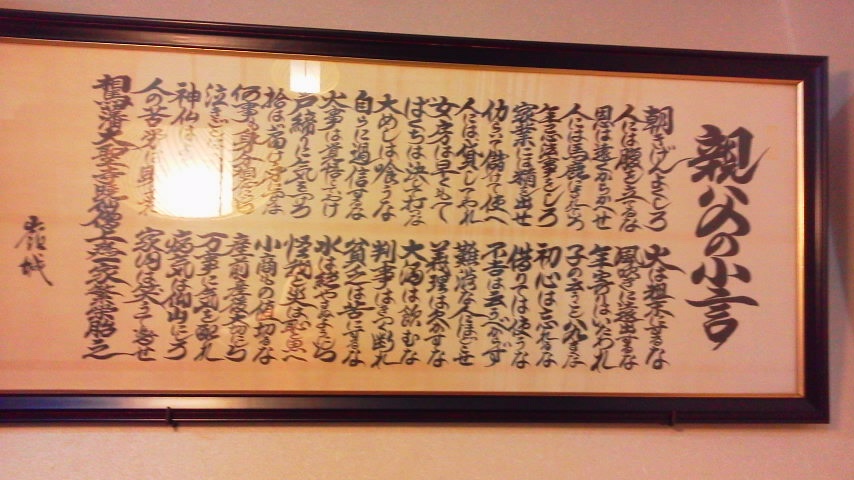 親父の小言
朝きげんよくしろ 火は粗末にするな
人には腹を立てるな 風吹きに遠出するな
恩は遠くからかくせ 年寄りはいたわれ
人には馬鹿にされろ 子の言うことは八九きくな
年忌法事をしろ 初心は忘れるな
家業には精を出せ 借りては使うな
仂らいて儲けて使へ 不吉は云うべからず
人には貸してやれ 難渋な人にほどこせ
女房は早くもて 義理は欠かすな
ばくちは決して打つな 大酒は飲むな
大めしは喰うな 判事はきつく断れ
自らに過信するな 貧乏は苦にするな
大事は覚悟しておけ 水は絶やさぬようにしろ
戸締りに気をつけろ 怪我と災は恥と思へ
拾わば届け身につけるな 小商もの値切るな
何事も身分相応にしろ 産前産後大切にしろ
泣きごとは 万事に気を配れ
神仏は 病気は仰山にしろ
人の苦労は 家内は笑ふて暮せ
相馬藩大聖寺暁仙僧上 家業栄